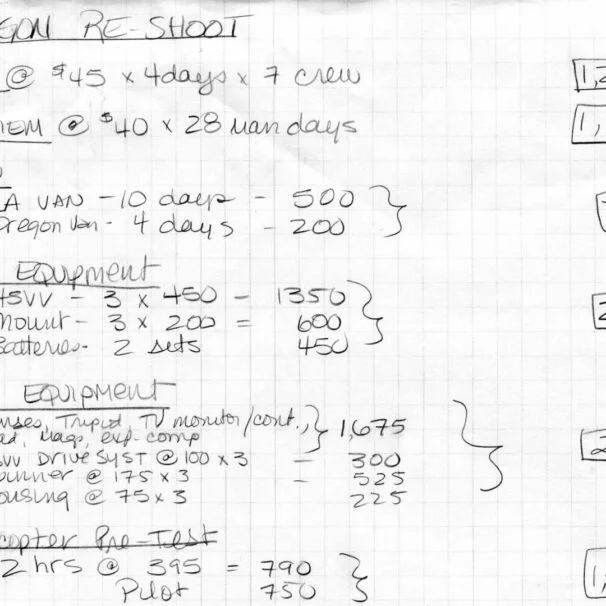 GON RE-SHOOT
@ $45 x 4days x 7 crew 1,2
IEM @ $40 x 28 Man days 1,
LA VAN - 10 days - 500
Oregon Van - 4 days - 200
EQUIPMENT
45VV - 3 x 450 - 1350
Mount - 3 x 200 = 600 2
Batteries - 2 sets 450
EQUIPMENT
nses, Tripod, TV monitor/cont., 1,675
ad, mags, exp. comp
SVV DRIVE SYST @ 100 x 3 = 300 2
unner @ 175 x 3 = 525
ousing @ 75 x 3 225
copter Pre-Test
2 hrs @ 395 = 790 1,
Pilot 750